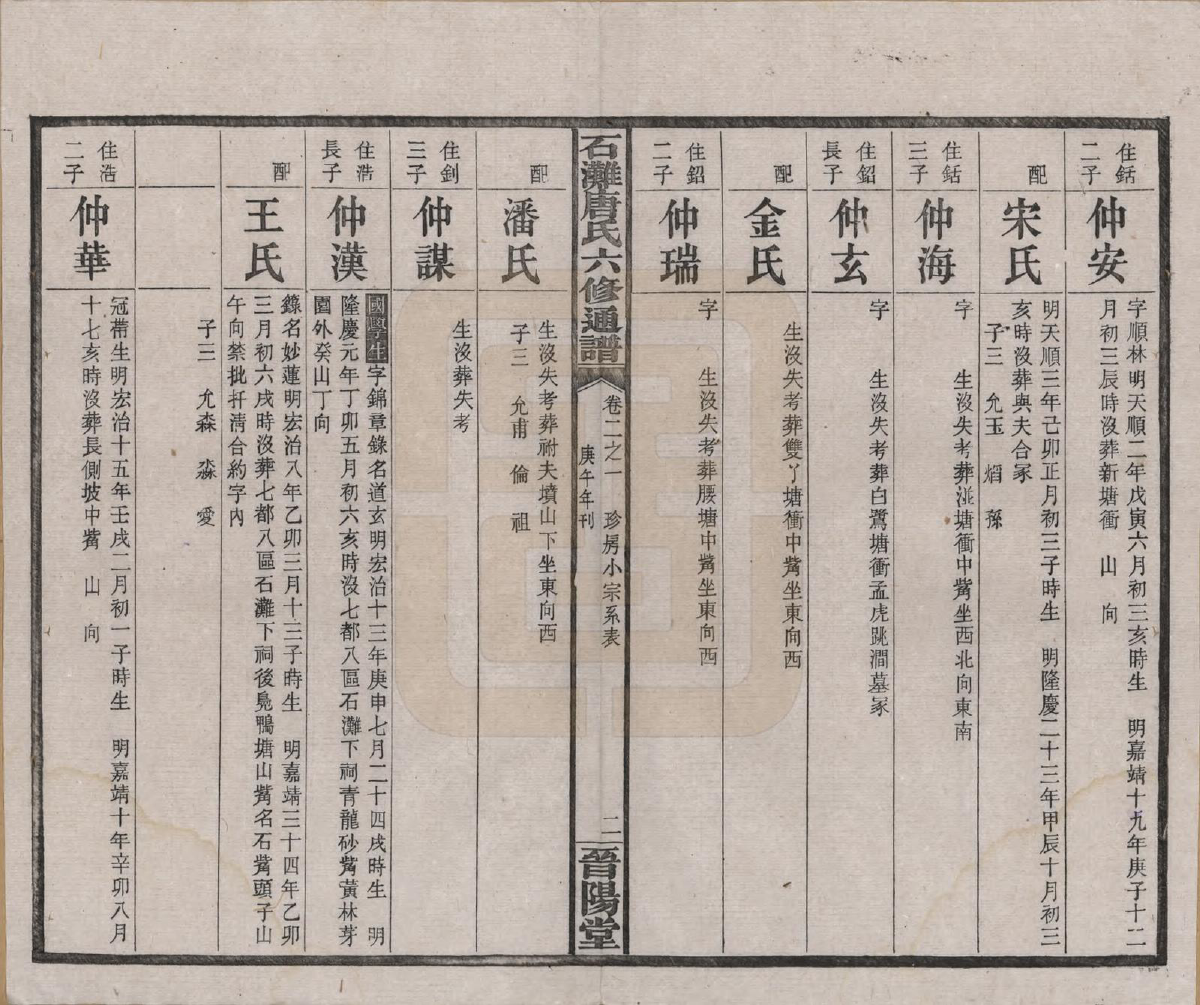 住銛
二子
仲安
字順林明天順二年戊寅六月初三亥時生　明嘉靖十九年庚子十二
月初三辰時沒葬新塘衝　山　向
配
宋氏
明天順三年己卯正月初三子時生　明隆慶二十三年甲辰十月初三
亥時沒葬與夫合冢
子三　允玉　熖　孫
住銛
三子
仲海
字　生沒失考葬湴塘衝中觜坐西北向東南
住鉊
長子
仲玄
字　生沒失考葬白鷺塘衝孟虎跳澗墓冢
配
金氏
生沒失考葬雙丫塘衝中觜坐東向西
住鉊
二子
仲瑞
字　生沒失考葬腰塘中觜坐東向西
石灘唐氏六修通譜
卷二之一　珍房小宗系表
庚午年刊
二
晉陽堂
配
潘氏
生沒失考葬祔夫墳山下坐東向西
子三　允甫　倫　祖
住釗
三子
仲謀
生沒葬失考
住浩
長子
仲漢
國學生字錦章錄名道玄明宏治十三年庚申七月二十四戌時生　明
隆慶元年丁卯五月初六亥時沒七都八區石灘下祠青龍砂觜黃林芽
園外癸山丁向
配
王氏
錄名妙蓮明宏治八年乙卯三月十三子時生　明嘉靖三十四年乙卯
三月初六戌時沒葬七都八區石灘下祠後鳧鴨塘山觜名石觜頭子山
午向禁批扦清合約字內
子三　允森　淼　愛
住浩
二子
仲華
冠帶生明宏治十五年壬戌二月初一子時生　明嘉靖十年辛卯八月
十七亥時沒葬長側坡中觜　山　向